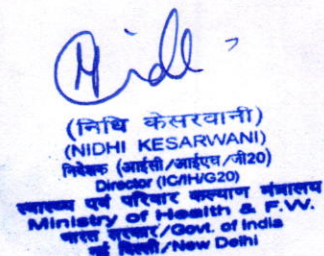 Nidhi
(निधि केसरवानी)
(NIDHI KESARWANI)
निदेशक (आईसी/आईएच/जी20)
Director (IC/IH/G20)
स्वास्थ्य एवं परिवार कल्याण मंत्रालय
Ministry of Health & F.W.
भारत सरकार/Govt. of India
नई दिल्ली/New Delhi